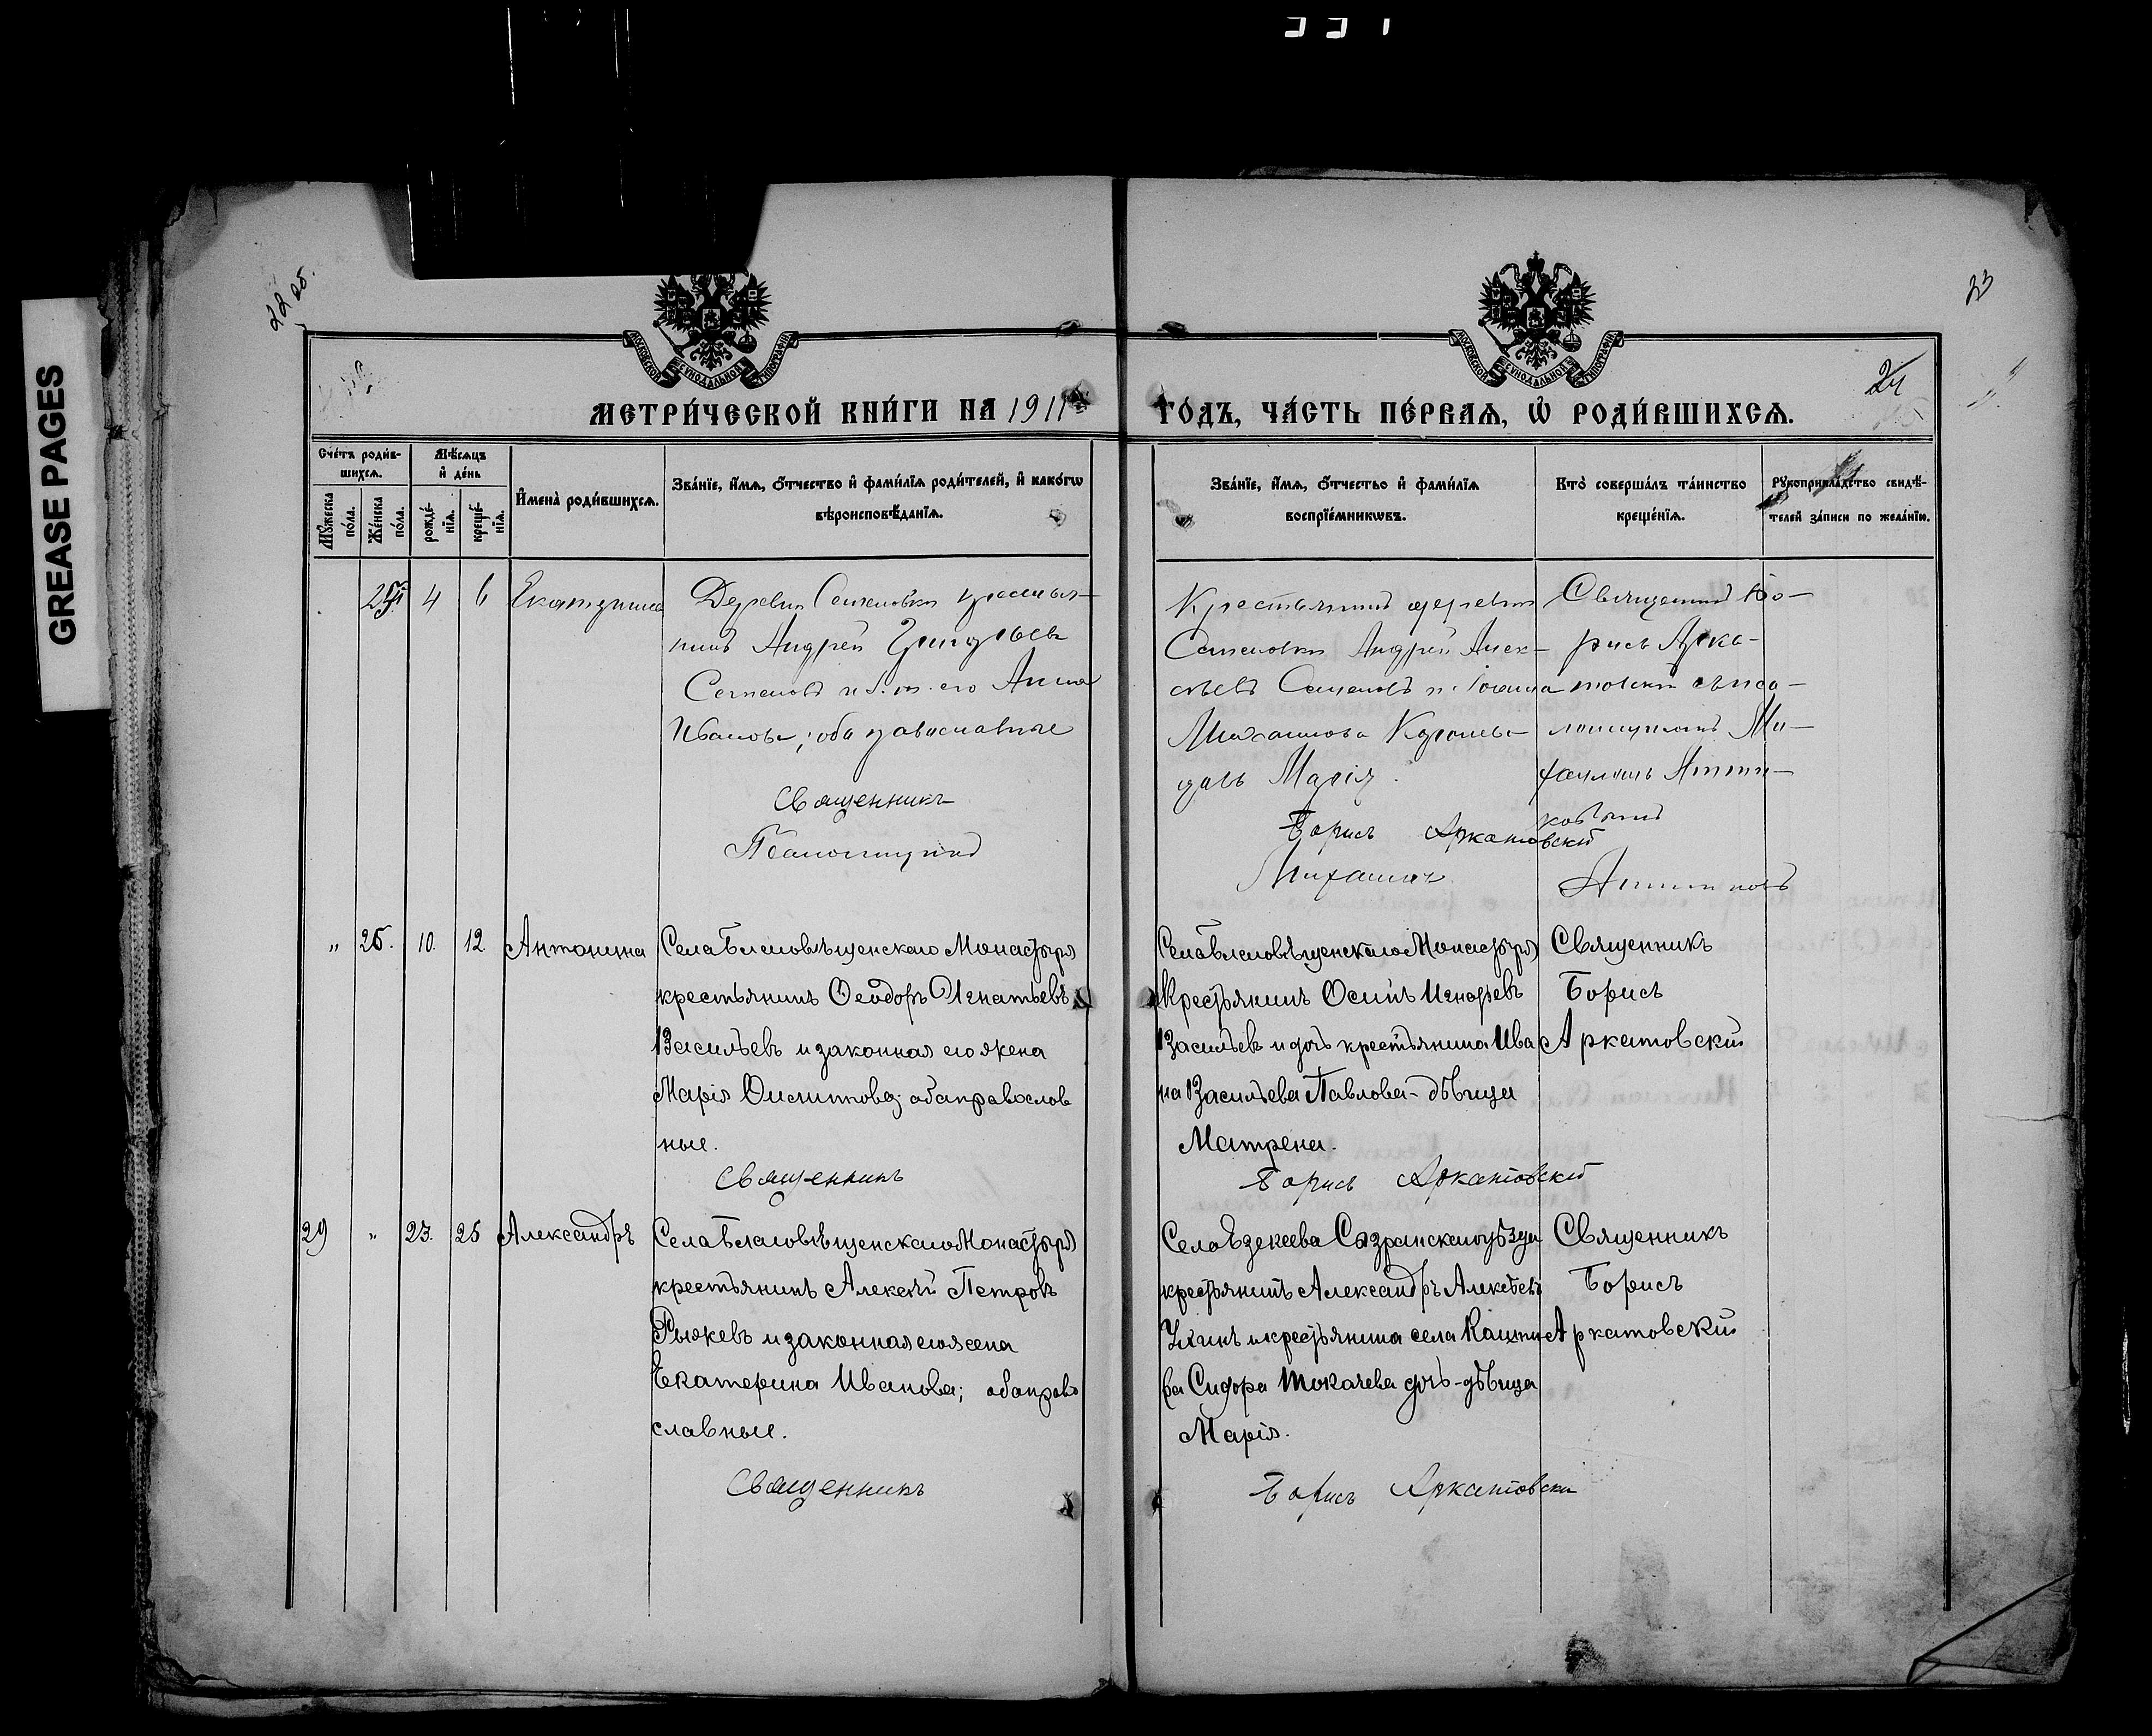 GREASE PAGES
22 об.
23
24
МОСКОВСКОЙ СѴНОДАЛЬНОЙ ТИПОГРАФІИ
МОСКОВСКОЙ СѴНОДАЛЬНОЙ ТИПОГРАФІИ
МЕТРИ́ЧЕСКОЙ КНИ́ГИ НА 1911
ГО́ДЪ, ЧА́СТЬ ПЕ́РВАѦ, Ѡ҆ РОДИ́ВШИХСѦ.
Сче́тъ роди́в-
шихсѧ.
Мѣ́сѧцъ
и҆ де́нь
Мꙋ́жеска
по́ла.
Же́нска
по́ла.
рожде́-
нїѧ.
креще́-
нїѧ.
И҆мена̀ роди́вшихсѧ.
Зва́нїе, и҆́мѧ, ѻ҆́тчество и҆ фами́лїѧ роди́телей, и҆ како́гѡ
вѣроисповѣ́данїѧ.
Зва́нїе, и҆́мѧ, ѻ҆́тчество и҆ фами́лїѧ
воспрїе́мникѡвъ.
Кто̀ соверша́лъ та́инство
креще́нїѧ.
Рꙋкоприкла́дство свидѣ́-
телей за́писи по жела́нїю.
4 6 Екатерина
Деревни Семеновки крестья-
нинъ Андрей Григорьевъ
Семеновъ и его Анна
Иванова; оба православные
Священникъ
Псаломщикъ
Крестьянинъ деревни
Семеновки Андрей Алек-
сѣевъ Семеновъ и
Михаилова
дочь Марія.
Борисъ Аркатовскій
Михаилъ
Священникъ Бо-
рисъ Арка-
товскій съ пса-
ломщикомъ Ми-
хаиломъ
„ 25. 10. 12 Антонина
Села Благовѣщенскаго Монастыря
крестьянинъ Ѳеодоръ Игнатьевъ
Васильевъ и законная его жена
Марія обаправослав
ные.
Священникъ
Села Благовѣщенскаго Монастыря
Крестьянинъ Осипъ Игнатьевъ
Васильевъ и дочь крестьянина Ива
на Васильева Павлова - дѣвица
Матрена.
Борисъ Аркатовскій
Священникъ
Борисъ
Аркатовскій
29 „ 23. 25 Александръ
Села Благовѣщенскаго Монастыря
крестьянинъ Алексѣй Петровъ
Рыжевъ и законная его жена
Екатерина Иванова; обаправо
славные.
Священникъ
Села Сызранскаго уѣзда
крестьянинъ Александръ Алексѣевъ
и крестьянина села
Сидора Токачева дочь - дѣвица
Марія.
Борисъ Аркатовскій
Священникъ
Борисъ
Аркатовскій